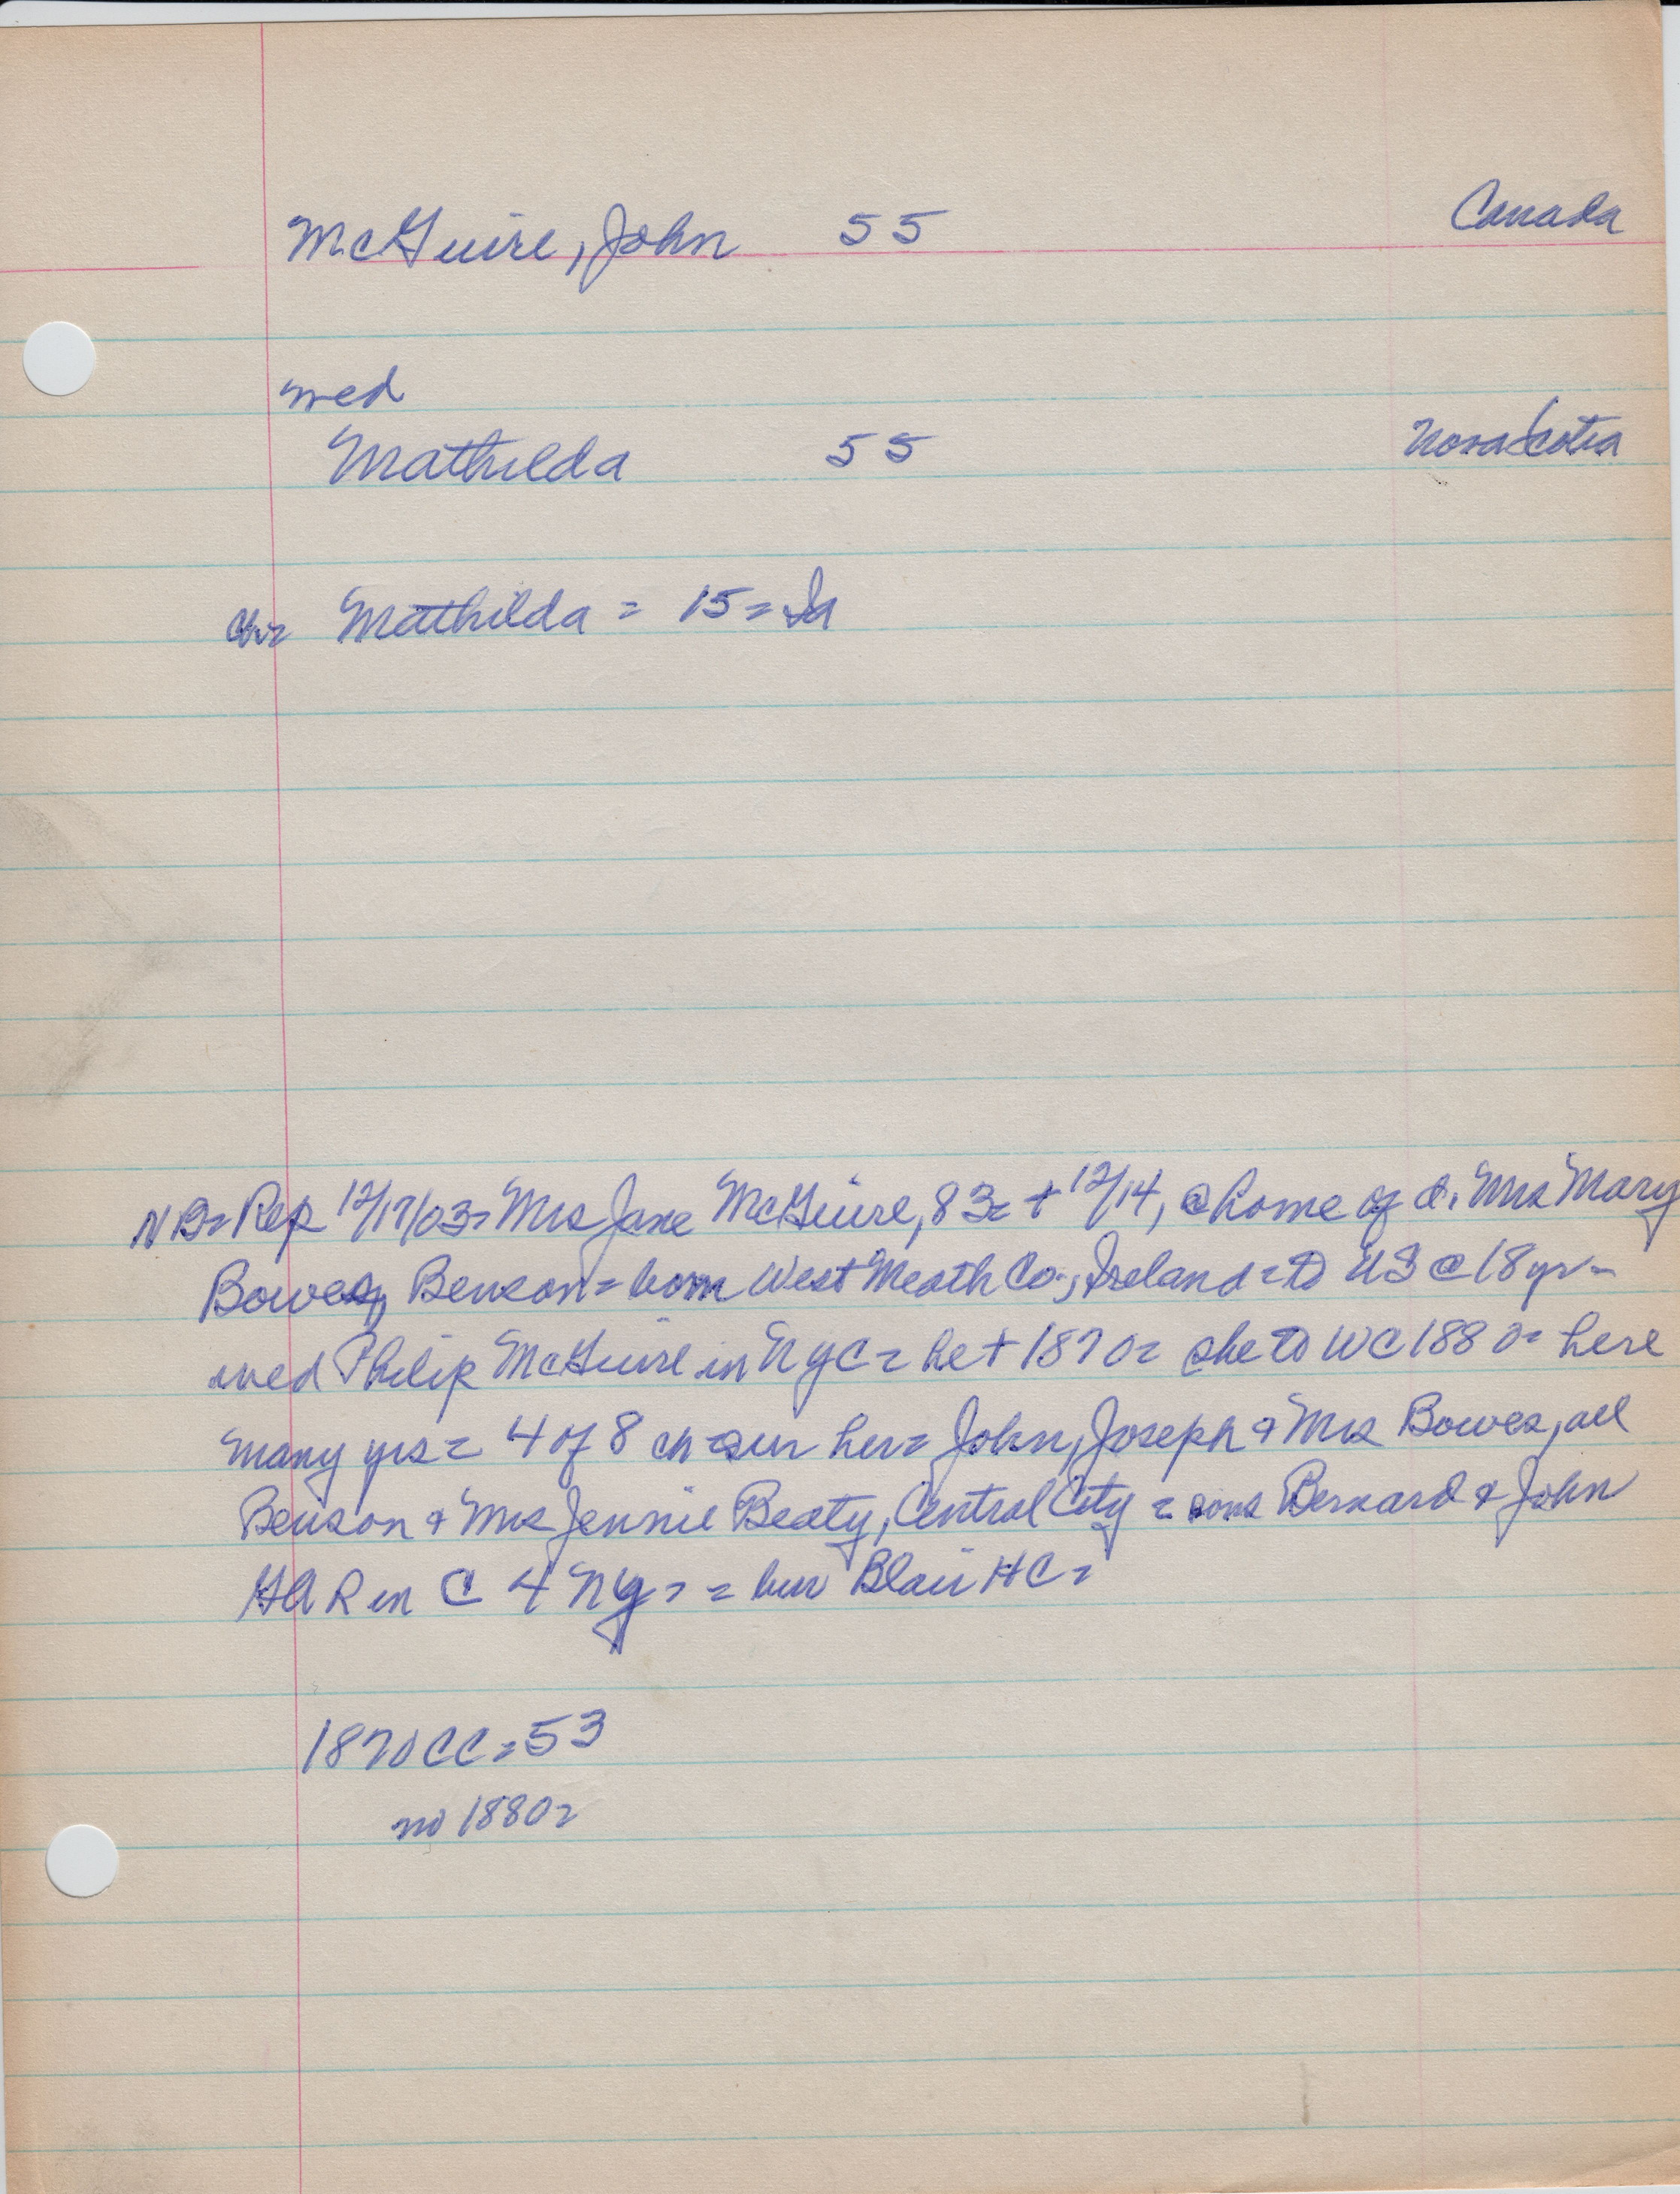 McGuire, John 55 Canada
wed
Mathilda 55 Nova Scotia
ch= Mathilda = 15 = Ia
NB= Rep 12/17/03= Mrs Jane McGuire, 83= + 12/14, @ home of d. Mrs Mary
Bowes, Benson= born West Meath Co., Ireland= to US @ 18 yr-
wed Philip McGuire in NYC= he + 1870= she to WC 1880= here
many yrs= 4 of 8 ch sur her= John, Joseph & Mrs Bowes, all
Benson & Mrs Jennie Beaty, Central City = sons Bernard & John
GAR in C 4 NY= = bur Blair HC=
1870 CC=53
no 1880=